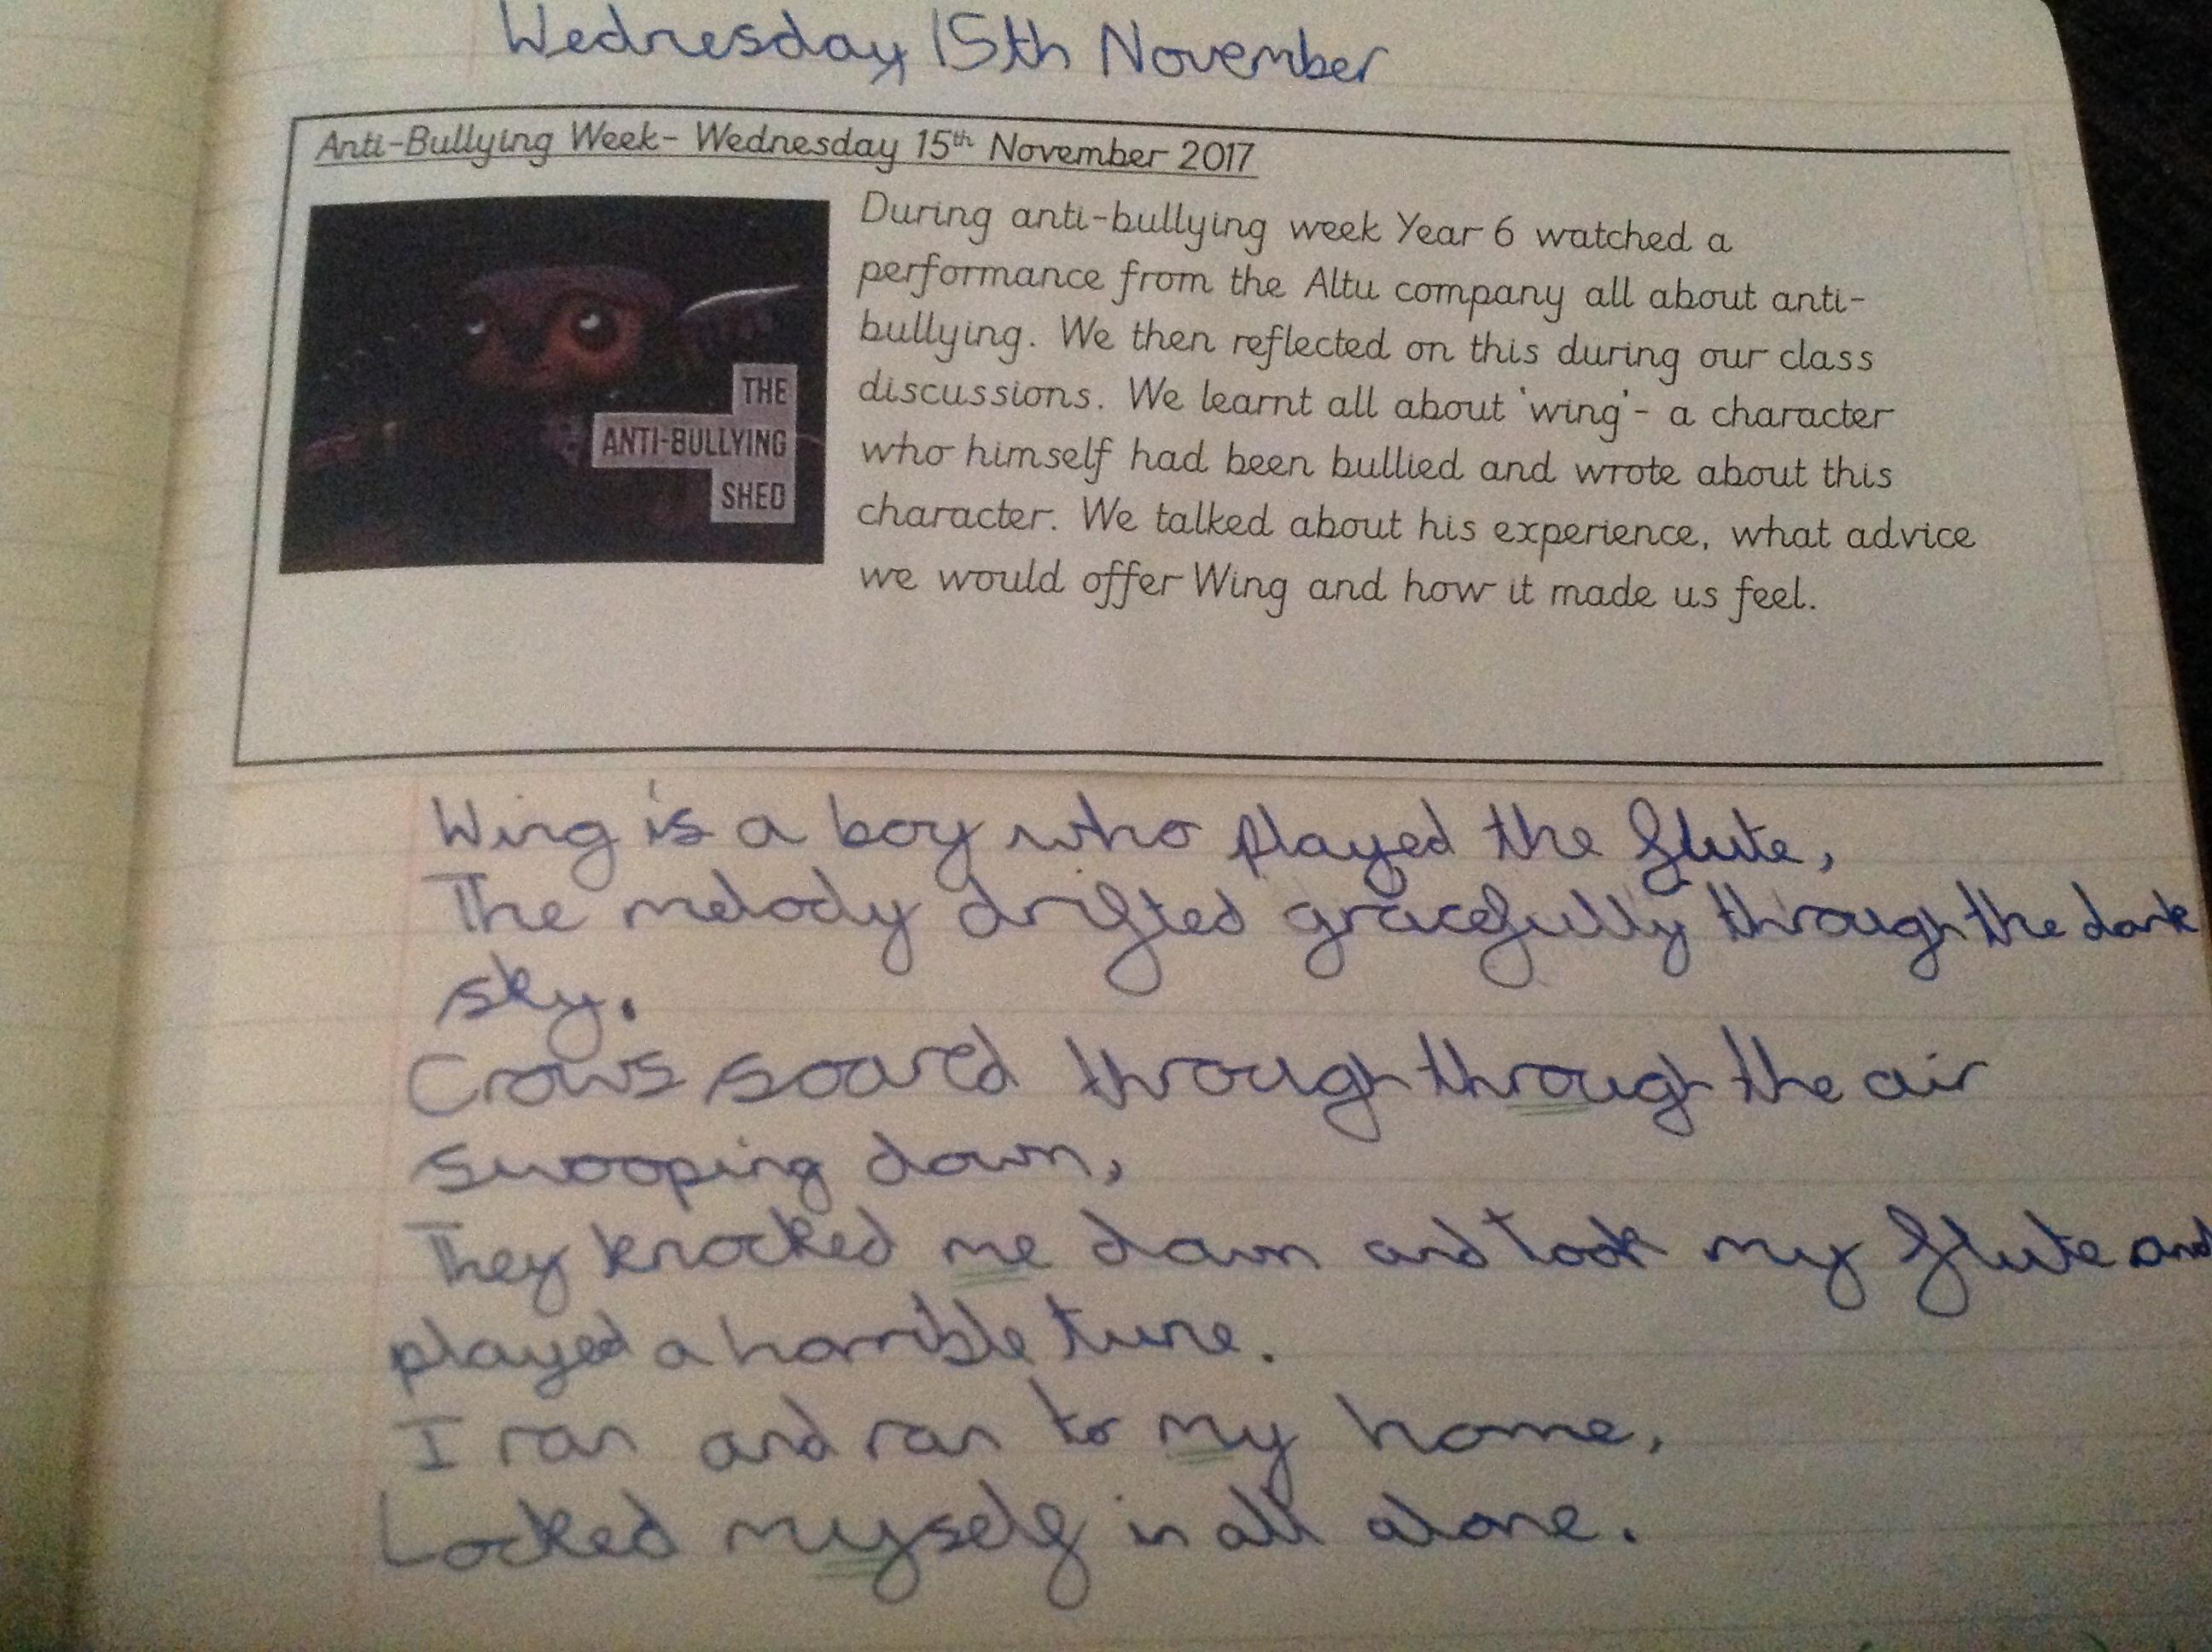 Wednesday 15th November
Anti-Bullying Week- Wednesday 15th November 2017
THE
ANTI-BULLYING
SHED
During anti-bullying week Year 6 watched a
performance from the Altu company all about anti-
bullying. We then reflected on this during our class
discussions. We learnt all about 'wing'- a character
who himself had been bullied and wrote about this
character. We talked about his experience, what advice
we would offer Wing and how it made us feel.
Wing is a boy who played the flute,
The melody drifted gracefully through the dark
sky.
Crows soared through through the air
swooping down,
They knocked me down and took my flute and
played a horrible tune.
I ran and ran to my home,
Locked myself in all alone.